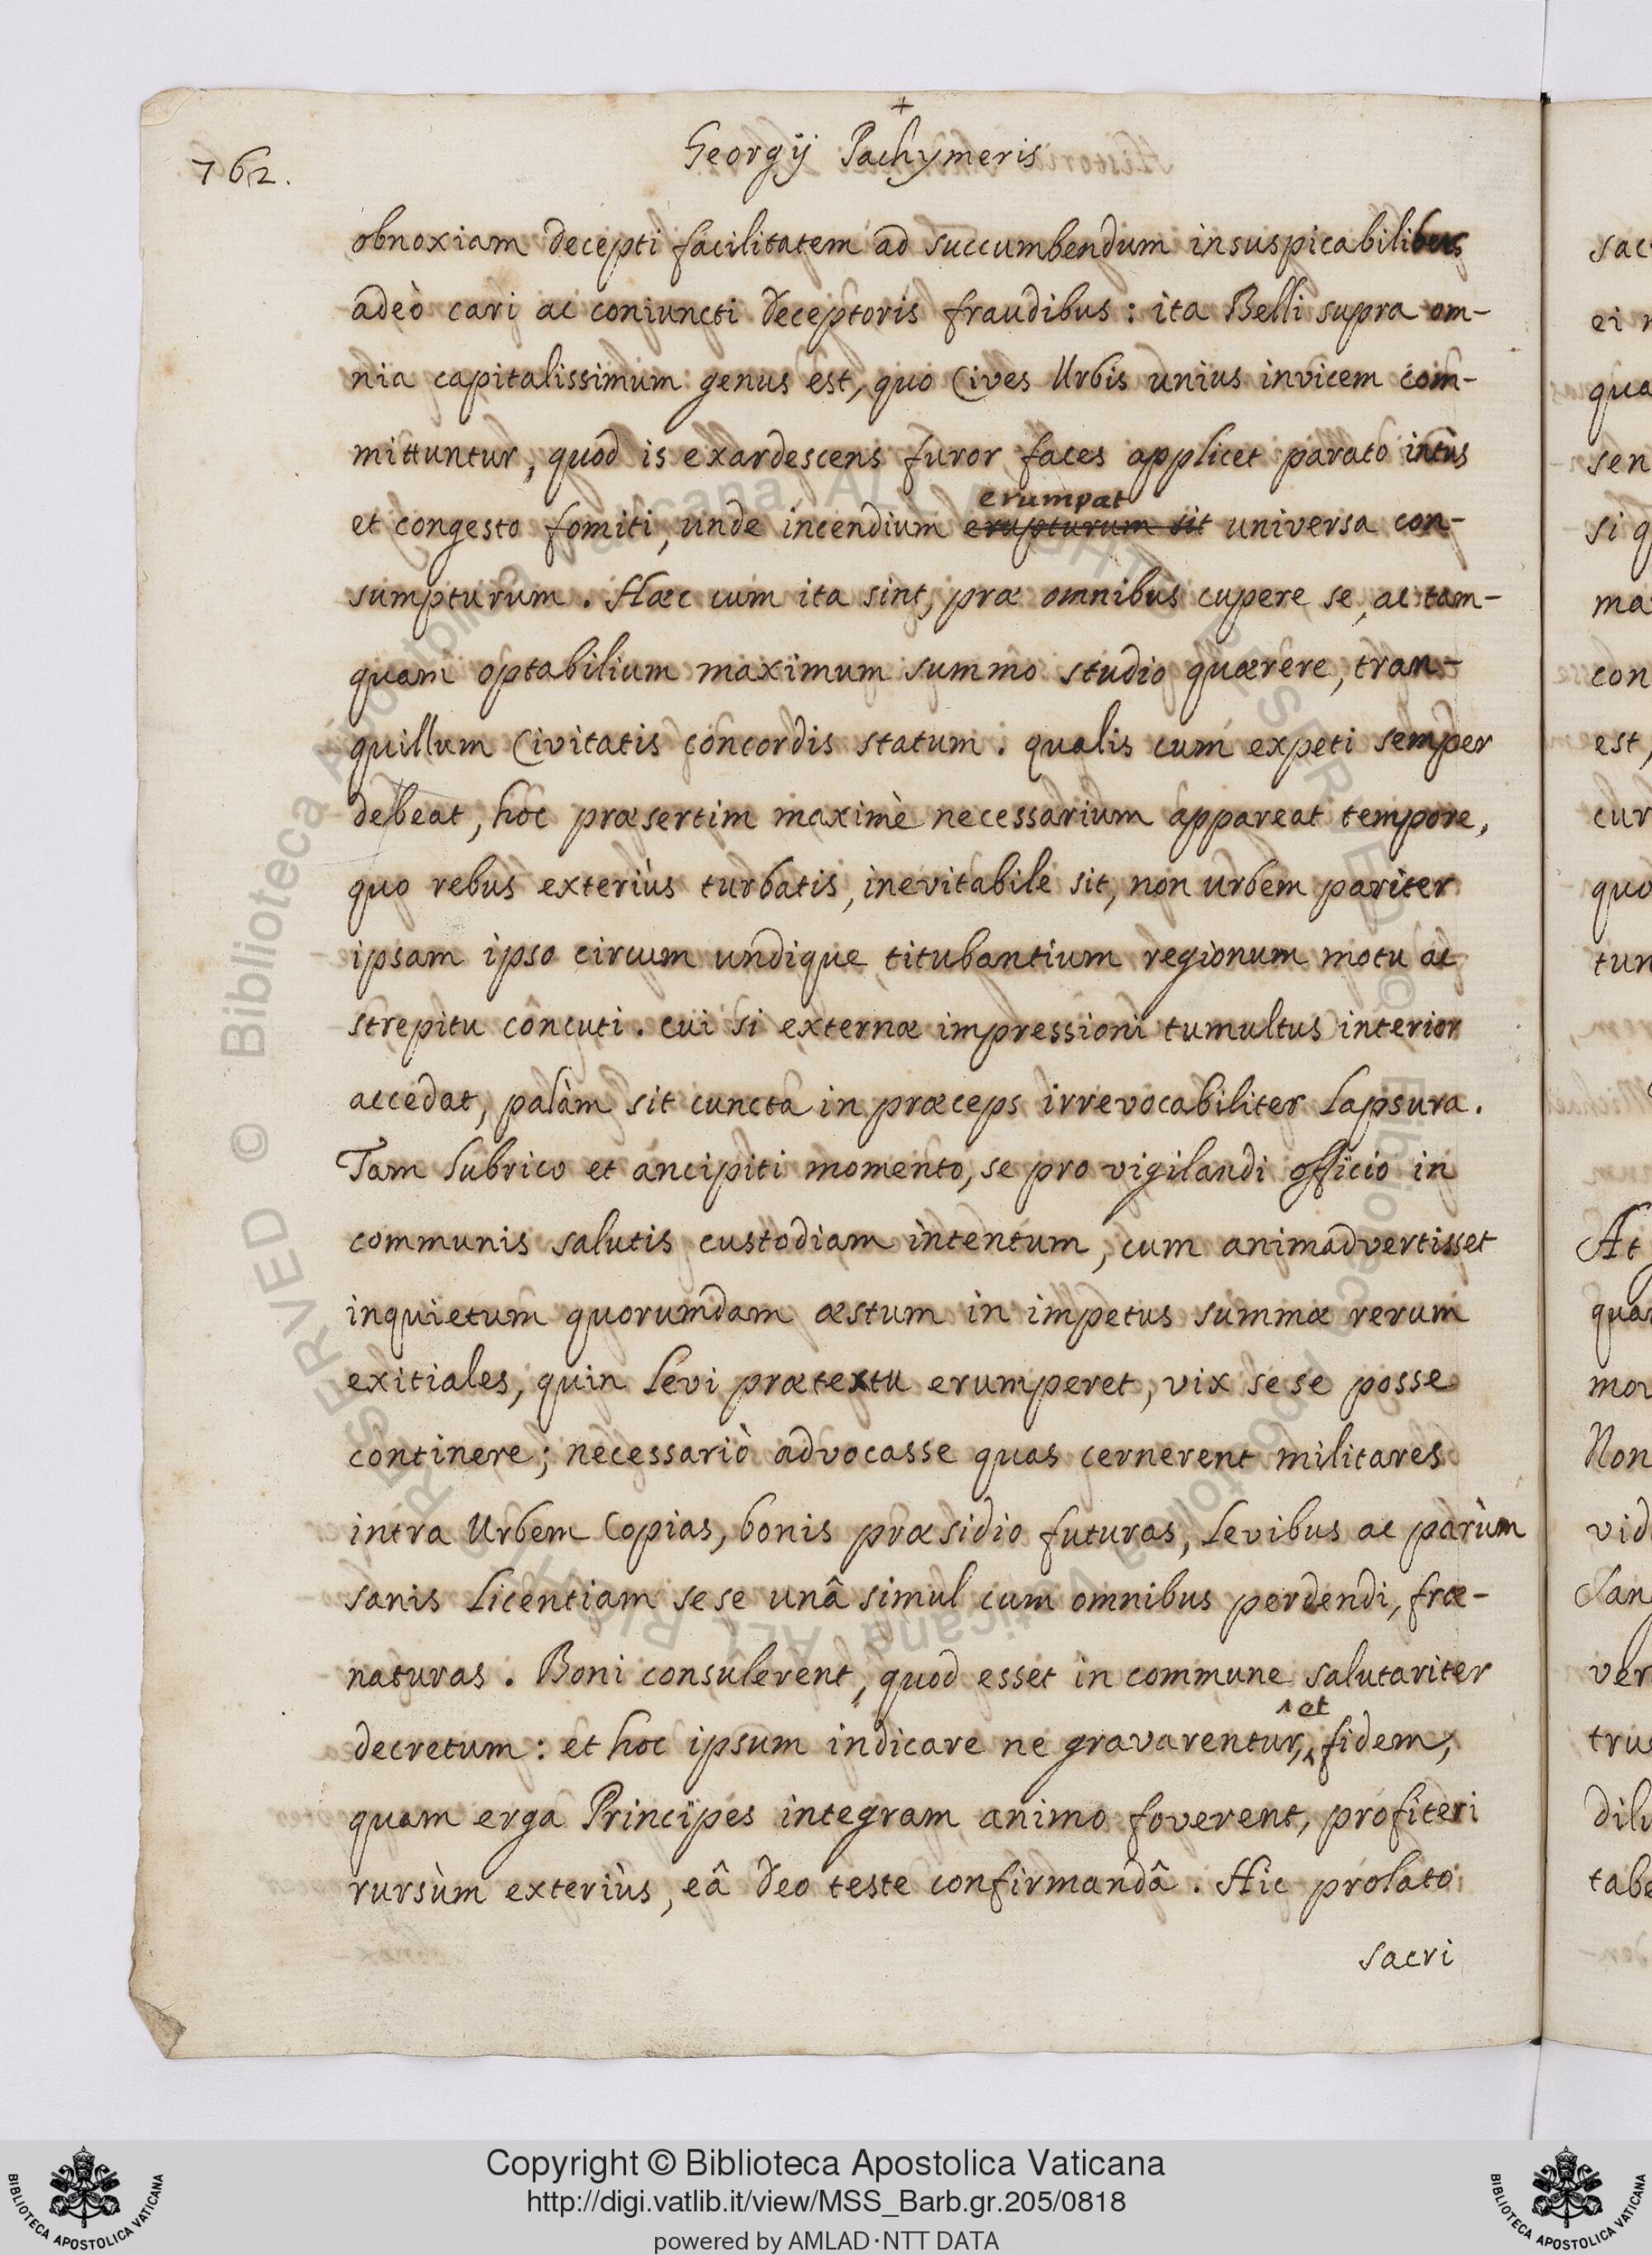 762.
+
Georgij Pachymeris
obnoxiam decepti facilitatem ad succumbendum insuspicabilibus
adeò cari ac coniuncti deceptoris fraudibus: ita Belli supra om-
nia capitalissimum genus est, quo Cives Urbis unius invicem com-
mittuntur, quod is exardescens furor faces applicet parato intùs
erumpat
et congesto fomiti, unde incendium erupturum sit universa con-
sumpturum. Hæc cum ita sint, præ omnibus cupere se, ac tam-
quam optabilium maximum summo studio quærere, tran-
quillum Civitatis concordis statum. qualis cum expeti semper
debeat, hoc præsertim maximè necessarium appareat tempore,
quo rebus exteriùs turbatis, inevitabile sit, non urbem pariter
ipsam ipso circum undique titubantium regionum motu ac
strepitu concuti. cui si externæ impressioni tumultus interior
accedat, palàm sit cuncta in præceps irrevocabiliter lapsura.
Tam lubrico et ancipiti momento, se pro vigilandi officio in
communis salutis custodiam intentum, cum animadvertisset
inquietum quorumdam æstum in impetus summæ rerum
exitiales, quin levi prætextu erumperet, vix sese posse
continere; necessariò advocasse quas cernerent militares
intra Urbem Copias, bonis præsidio futuras, levibus ac parùm
sanis licentiam sese unâ simul cum omnibus perdendi, fræ-
naturas. Boni consulerent, quod esset in commune salutariter
et
decretum: et hoc ipsum indicare ne gravarentur, fidem,
quam erga Principes integram animo foverent, profiteri
rursùm exteriùs, eâ Deo teste confirmandâ. Hic prolato
sacri
sac
ei
qua
sen
si q
ma
con
est,
cur
quo
tun
At
qua
mov
Non
vid
San
ver
trus
dilu
tabe
© Biblioteca Apostolica Vaticana ALL RIGHTS RESERVED © Biblioteca Apostolica Vaticana ALL RIGHTS RESERVED
BIBLIOTECA APOSTOLICA VATICANA
Copyright © Biblioteca Apostolica Vaticana
http://digi.vatlib.it/view/MSS_Barb.gr.205/0818
powered by AMLAD·NTT DATA
BIBLIOTECA APOSTOLICA VATICANA